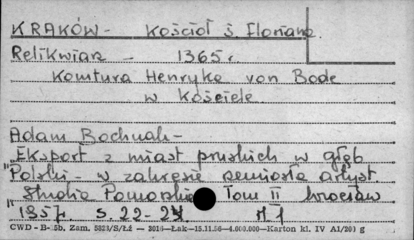 KRAKÓW - Kościół ś. Floriana
Relikwiarz - 1365 r.
Komtura Henryka von Bode
w Kościele
Adam Bochnak -
Eksport z miast pruskich w głąb
Polski - w zakresie rzemiosła artyst.
"Studia Pomorskie" Tom II Wrocław
1957. s. 22-24
CWD - B-5b, Zam. 5823/S/Łź — 2016—Łak—15.11.56—4.000.000—Karton kl. IV A1/201 g